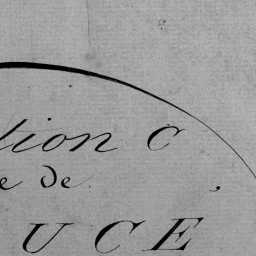 tion C
e de
UCE